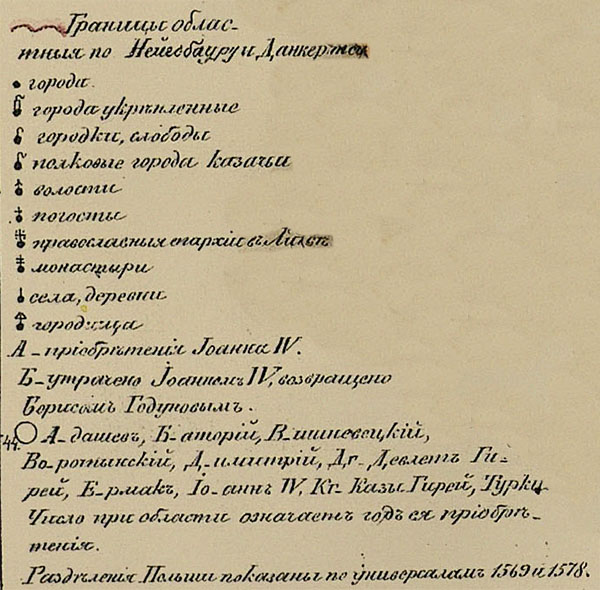 Границы облас-
тныя по Нейебауру и Данкертса
города
города укрѣпленные
городки, слободы
полковые города казачьи
волости
погосты
православныя епархіи въ Литвѣ
монастыри
села, деревни
городища
А - пріобрѣтенія Іоанна IV.
Б - утрачено Іоанномъ IV, возвращено
Борисомъ Годуновымъ.
44. А-дашевъ, Б-аторій, В-ишневецкій,
Во-ротынскій, Д-имитрій, Дг-Девлетъ Ги-
рей, Е-рмакъ, Іо-аннъ IV, Кг-Казы Гирей, Турки
Число при области означаетъ годъ ея пріобрѣ-
тенія.
Раздѣленія Польши показаны по универсаламъ 1569 и 1578.